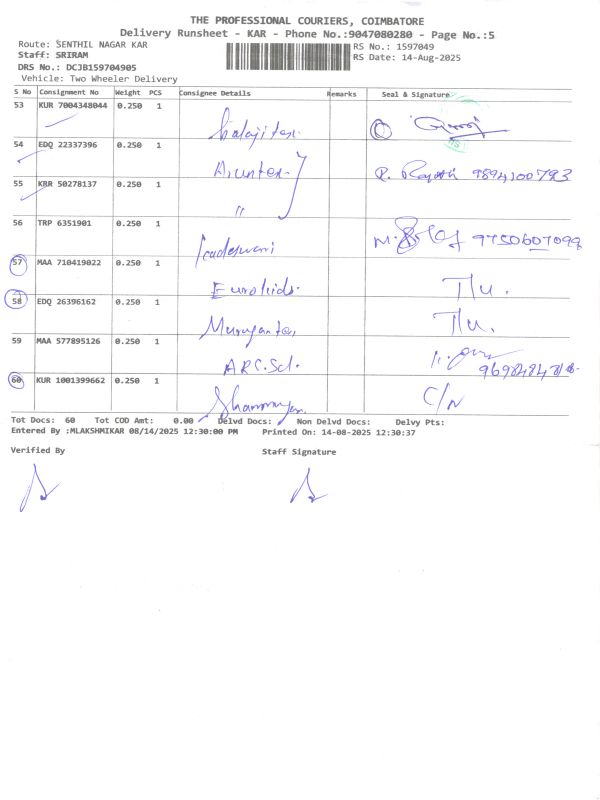 THE PROFESSIONAL COURIERS, COIMBATORE
Delivery Runsheet - KAR - Phone No.:9047080280 - Page No.:5
Route: SENTHIL NAGAR KAR
RS No.: 1597049
Staff: SRIRAM
RS Date: 14-Aug-2025
DRS No.: DCJB159704905
Vehicle: Two Wheeler Delivery
S No Consignment No Weight PCS Consignee Details Remarks Seal & Signature
53 KUR 7004348044 0.250 1 Balajitex
54 EDQ 22337396 0.250 1 Aruntex
55 KRR 50278137 0.250 1 " 9894100793
56 TRP 6351901 0.250 1 9750607099
57 MAA 710419022 0.250 1 Eurokids. T/u.
58 EDQ 26396162 0.250 1 Muruyantex T/u.
59 MAA 577895126 0.250 1 A.R.C.Scl.
60 KUR 1001399662 0.250 1 C/N
Tot Docs: 60 Tot COD Amt: 0.00 Delvd Docs: Non Delvd Docs: Delvy Pts:
Entered By :MLAKSHMIKAR 08/14/2025 12:30:00 PM Printed On: 14-08-2025 12:30:37
Verified By Staff Signature